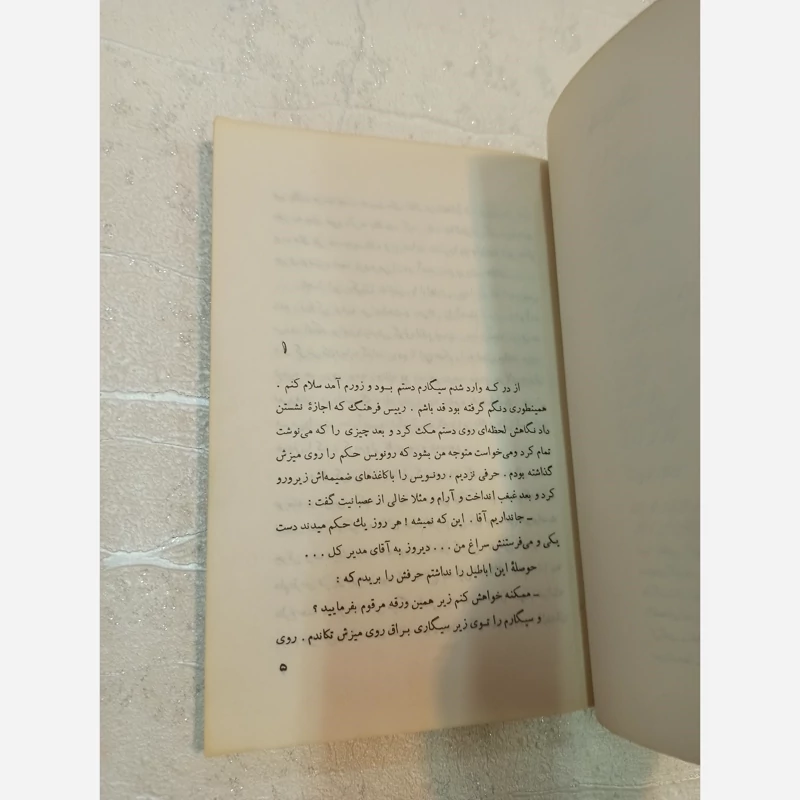 ۱
از در که وارد شدم سیگارم دستم بـود و زورم آمد سلام کنم .
همینطوری دنگم گرفته بود قد باشم . رییس فرهنگ که اجازهٔ نشستن
داد نگاهش لحظه‌ای روی دستم مکث کرد و بعد چیزی را که می‌نوشت
تمام کرد و می‌خواست متوجه من بشود که رونویس حکم را روی میزش
گذاشته بودم . حرفی نزدیم . رونـویس را با کاغذهای ضمیمه‌اش زیر و رو
کرد و بعد غبغب انداخت و آرام و مثلا خالی از عصبانیت گفت :
ـ جانداریم آقا . این که نمیشه ! هر روز یك حکم میدند دست
یکی و می‌فرستنش سراغ من . . . دیروز به آقای مدیر کل . . .
حوصلهٔ این اباطیل را نداشتم حرفش را بریدم که :
ـ ممکنه خواهش کنم زیر همین ورقه مرقوم بفرمایید ؟
و سیگارم را تـوی زیر سیـگاری بـراق روی میزش تکاندم . روی
۵